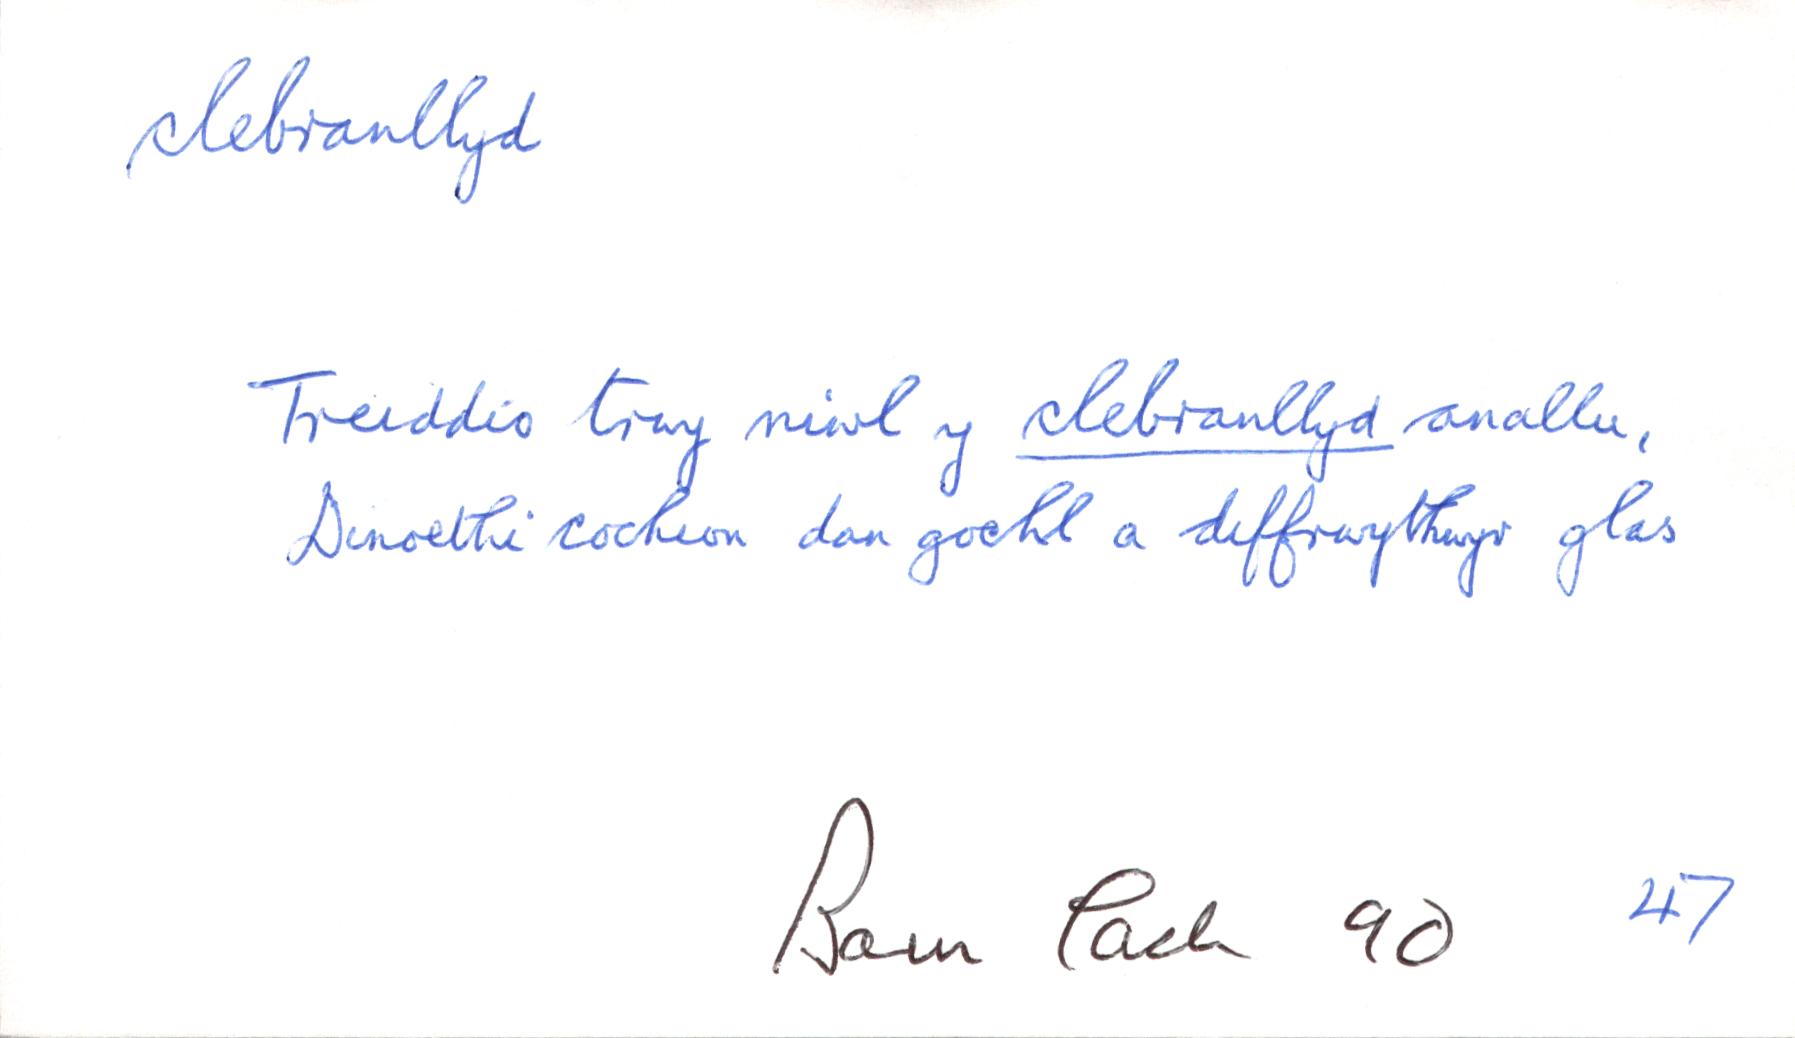 clebranllyd
Treiddio trwy niwl y clebranllyd anallu,
Dinoethi cochion dan gochl a diffrwythwyr glas
Barn Cach 90 47